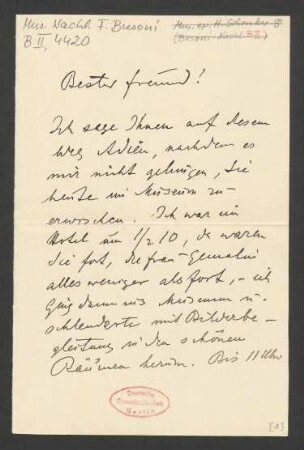 Mus. Nachl. F. Busoni
B II, 4420
Mus. ep. H. Schenker 8
(Busoni-Nachl. B II)
Bester Freund!
Ich sage Ihnen auf diesem
Weg Adieu, nachdem es
mir nicht gelungen, Sie
heute im Museum zu
erwischen. Ich war im
Hotel um 1/2 10, da waren
Sie fort, die Frau Gemalin
alles weniger als fort, – ich
ging dann ins Museum u.
schlenderte mit
gleitung in den schönen
Räumen herum. Bis 11 Uhr
Deutsche
Staatsbibliothek
Berlin
[1]